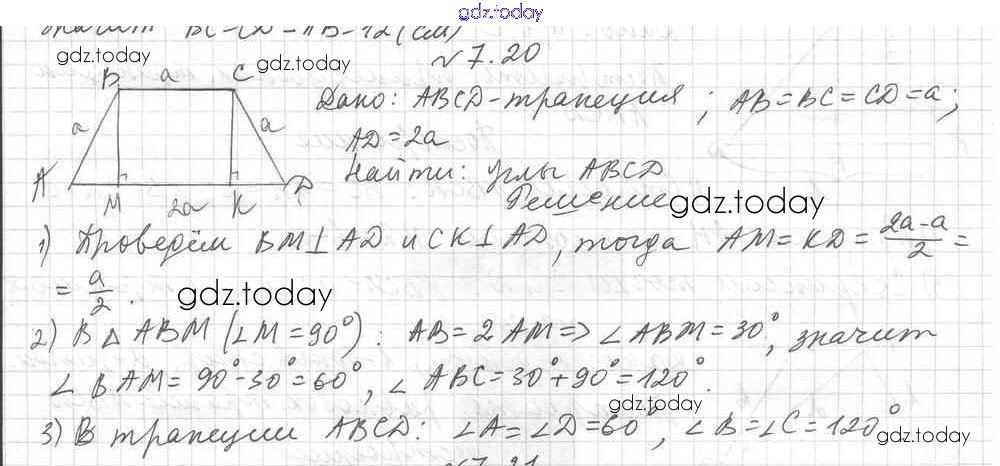 gdz.today
значит BC=CD=AB=12(см)
№7.20
gdz.today
gdz.today
B a C
a a
A D
M 2a K
Дано: ABCD-трапеция ; AB=BC=CD=a;
AD=2a
Найти: углы ABCD
Решение
gdz.today
1) Проведём BM⊥AD и CK⊥AD, тогда AM=KD=(2a-a)/2=
=a/2.
gdz.today
2) В △ABM (∠M=90°): AB=2AM=>∠ABM=30°, значит
∠BAM=90°-30°=60°, ∠ABC=30°+90°=120°.
gdz.today
3) В трапеции ABCD: ∠A=∠D=60°, ∠B=∠C=120°
gdz.today
№7.21